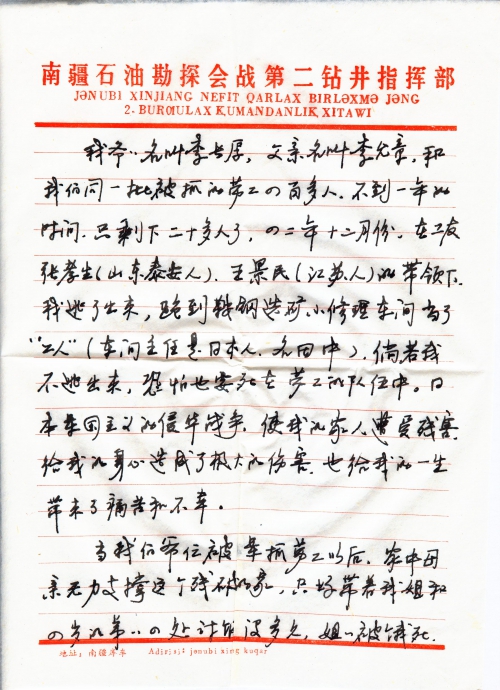 南疆石油勘探会战第二钻井指挥部
JƏNUBI XINJIANG NEFIT QARLAX BIRLƏXMƏ JƏNG
2-BURƢULAX KUMANDANLIK XITAWI
我爷爷名叫李长厚，父亲名叫李允章，和
我们同一批被抓的劳工四百多人，不到一年的
时间，只剩下二十多人了，四二年十二月份，在工友
张孝生(山东泰安人)、王景民(江苏人)的带领下，
我逃了出来，跑到鞍钢选矿小修理车间当了
“工人”(车间主任是日本人，名田中)，倘若我
不逃出来，恐怕也要死在劳工的队伍中。日
本军国主义的侵华战争，使我的家人遭受残害，
给我的身心造成了极大的伤害，也给我的一生
带来了痛苦和不幸。
当我们爷仨被牵抓劳工以后，家中母
亲无力支撑这个残破的家，只好带着我姐和
四岁的弟弟四处讨饭没多久，姐姐被饿死，
地址：南疆库车 Adirisi: jənubi xing kuqar